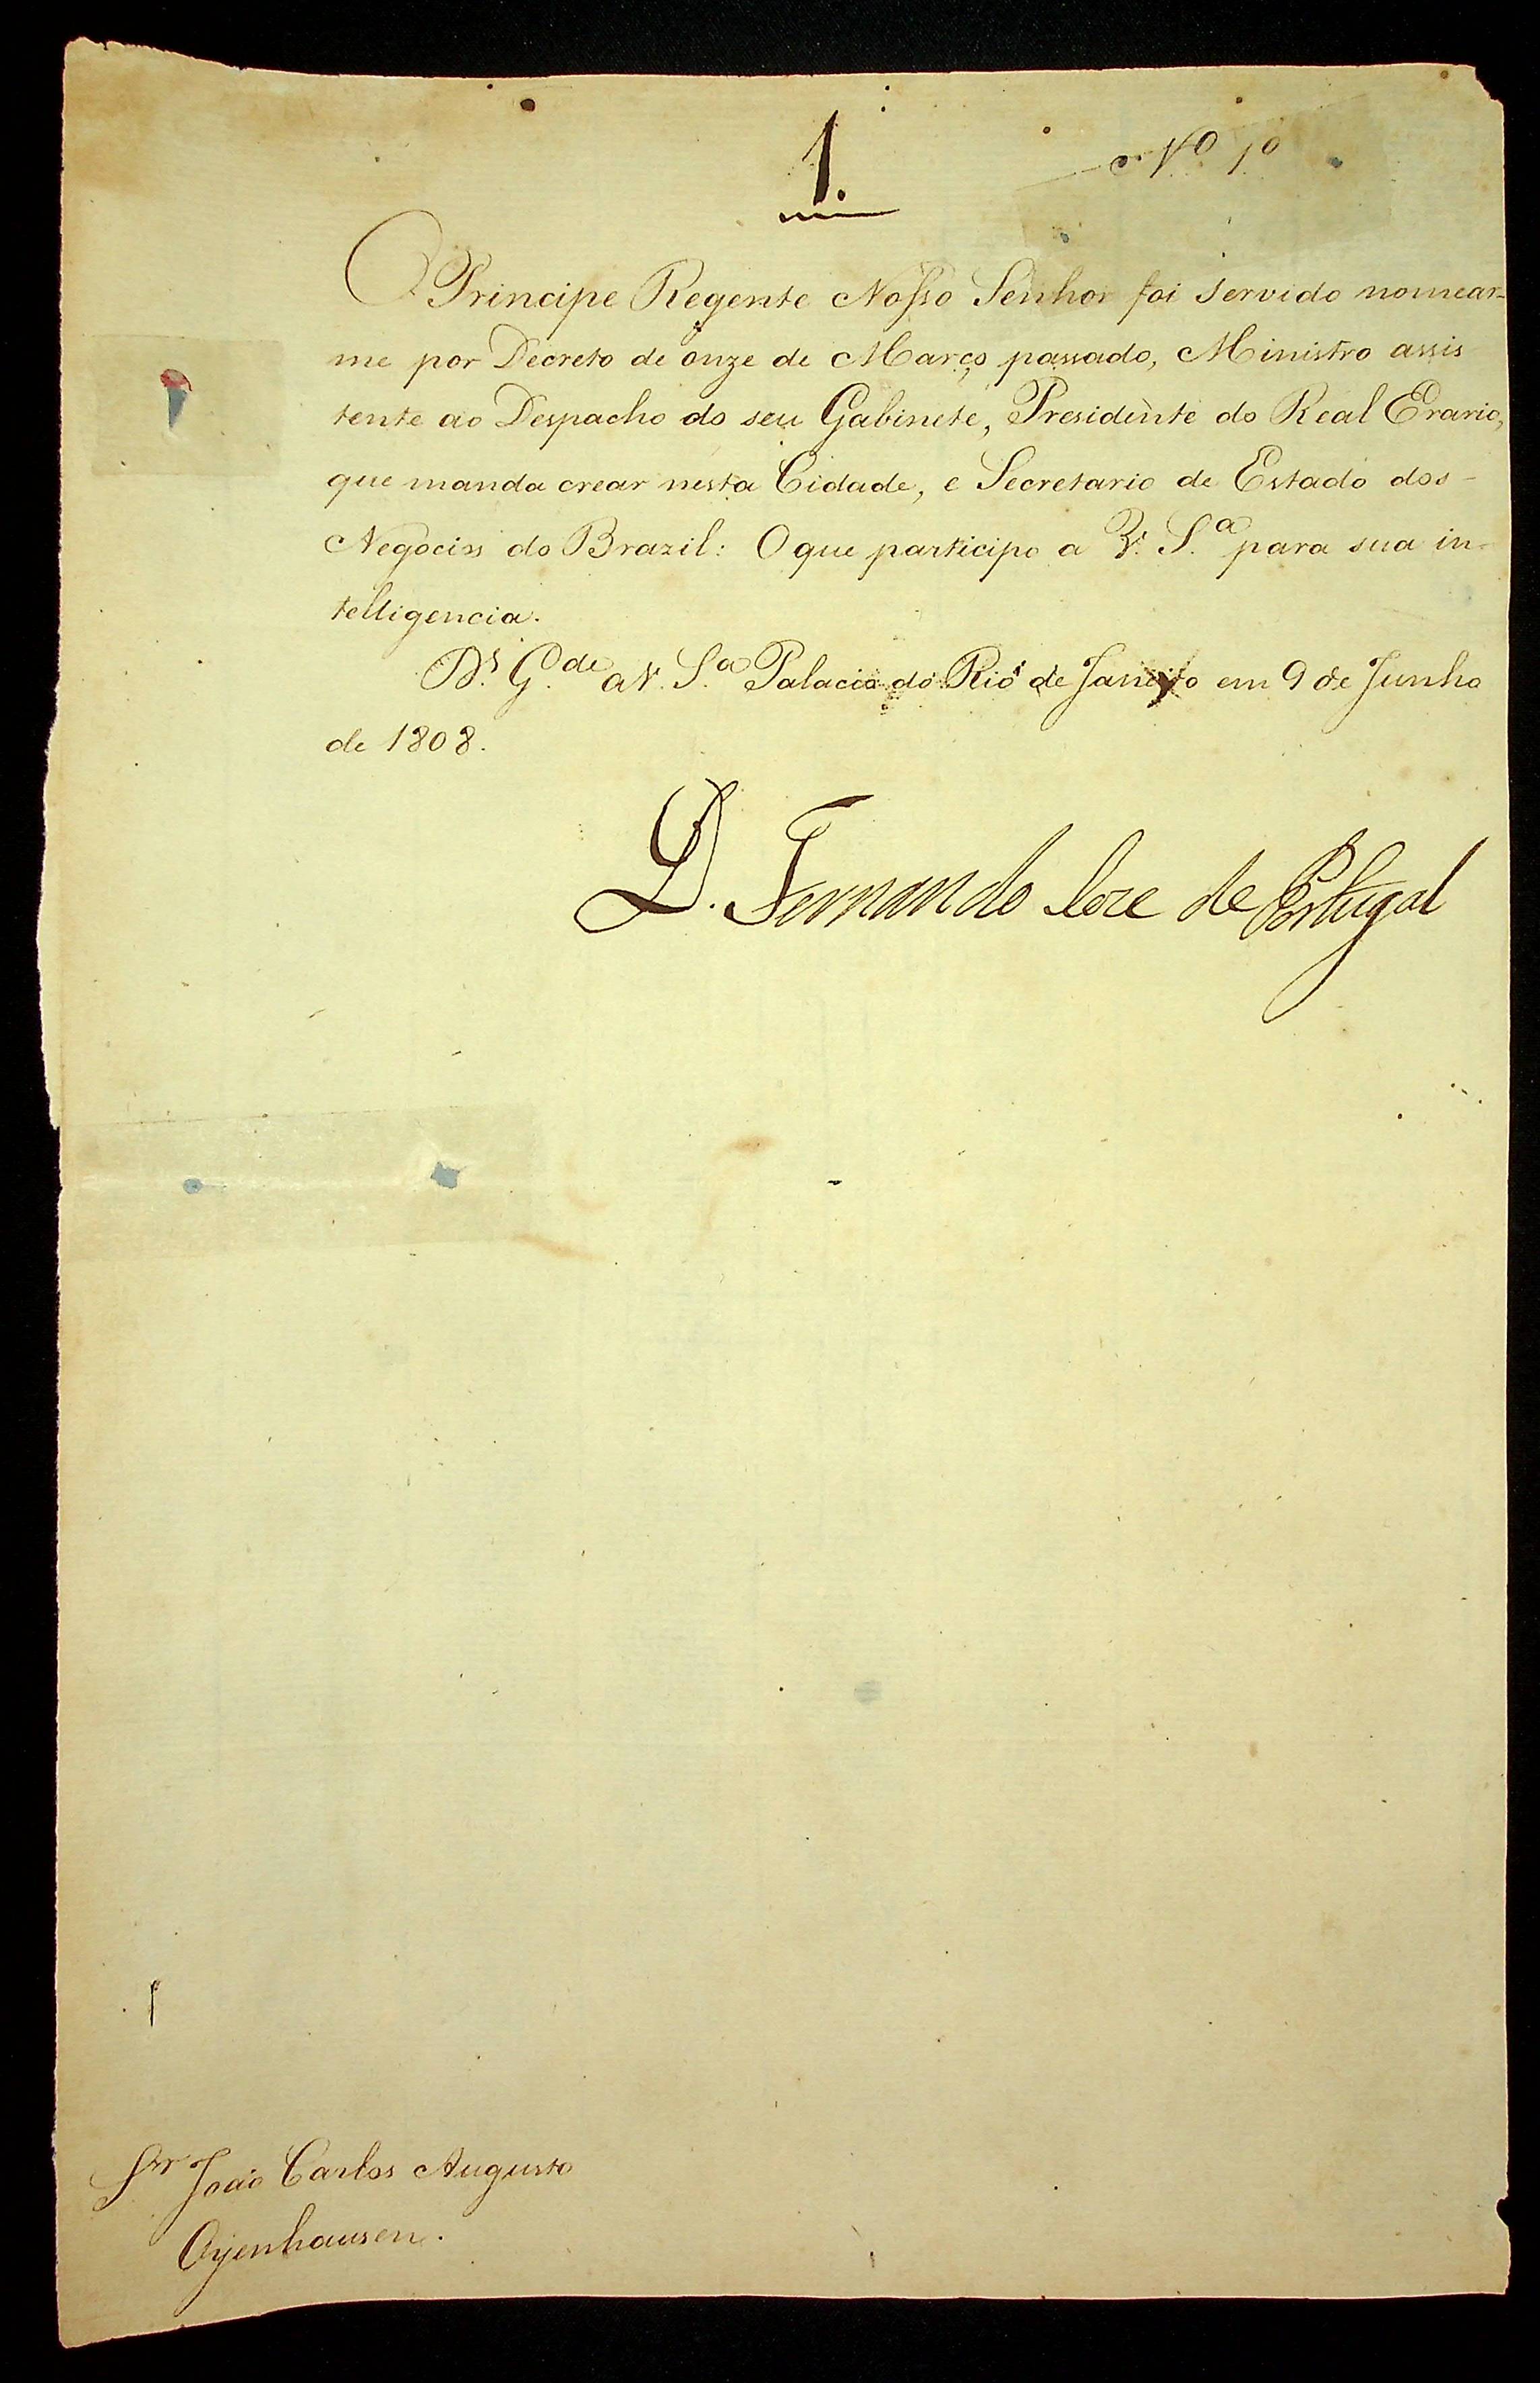 1.
Nº 1º
O Principe Regente Nosso Senhor foi servido nomear-
me por Decreto de onze de Março passado, Ministro assis
tente ao Despacho do seu Gabinete, Presidente do Real Erario,
que manda crear nesta Cidade, e Secretario de Estado dos
Negocios do Brazil: O que participo a V. S.ª para sua in-
telligencia.
D.s G.de a V. S.ª Palacio do Rio de Janeiro em 9 de Junho
de 1808.
D. Fernando Joze de Portugal
Snr João Carlos Augusto
Oyenhausen.